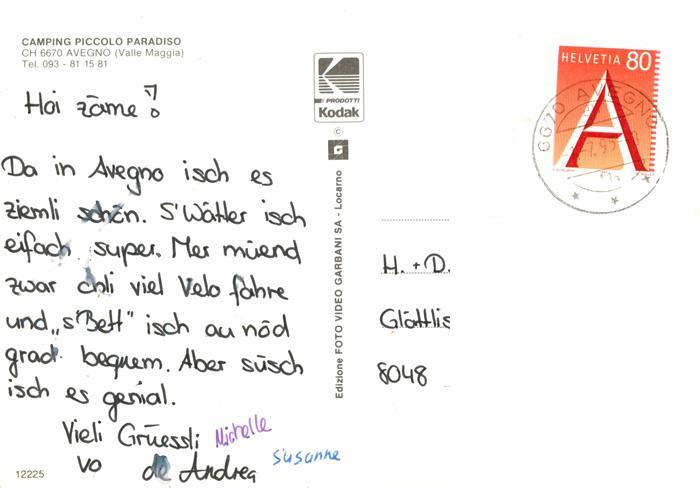 CAMPING PICCOLO PARADISO
CH 6670 AVEGNO (Valle Maggia)
Tel. 093 - 81 15 81
Hoi zäme!
Da in Avegno isch es
ziemli schön. S'Wätter isch
eifach super. Mer müend
zwar chli viel Velo fahre
und „s'Bett" isch au nöd
grad bequem. Aber süsch
isch es genial.
Vieli Grüessli Michelle
vo de Andrea Susanne
12225
PRODOTTI
Kodak
©
G
Edizione FOTO VIDEO GARBANI SA - Locarno
HELVETIA 80
A
6670 AVEGNO
H. + D.
Glättlis
8048